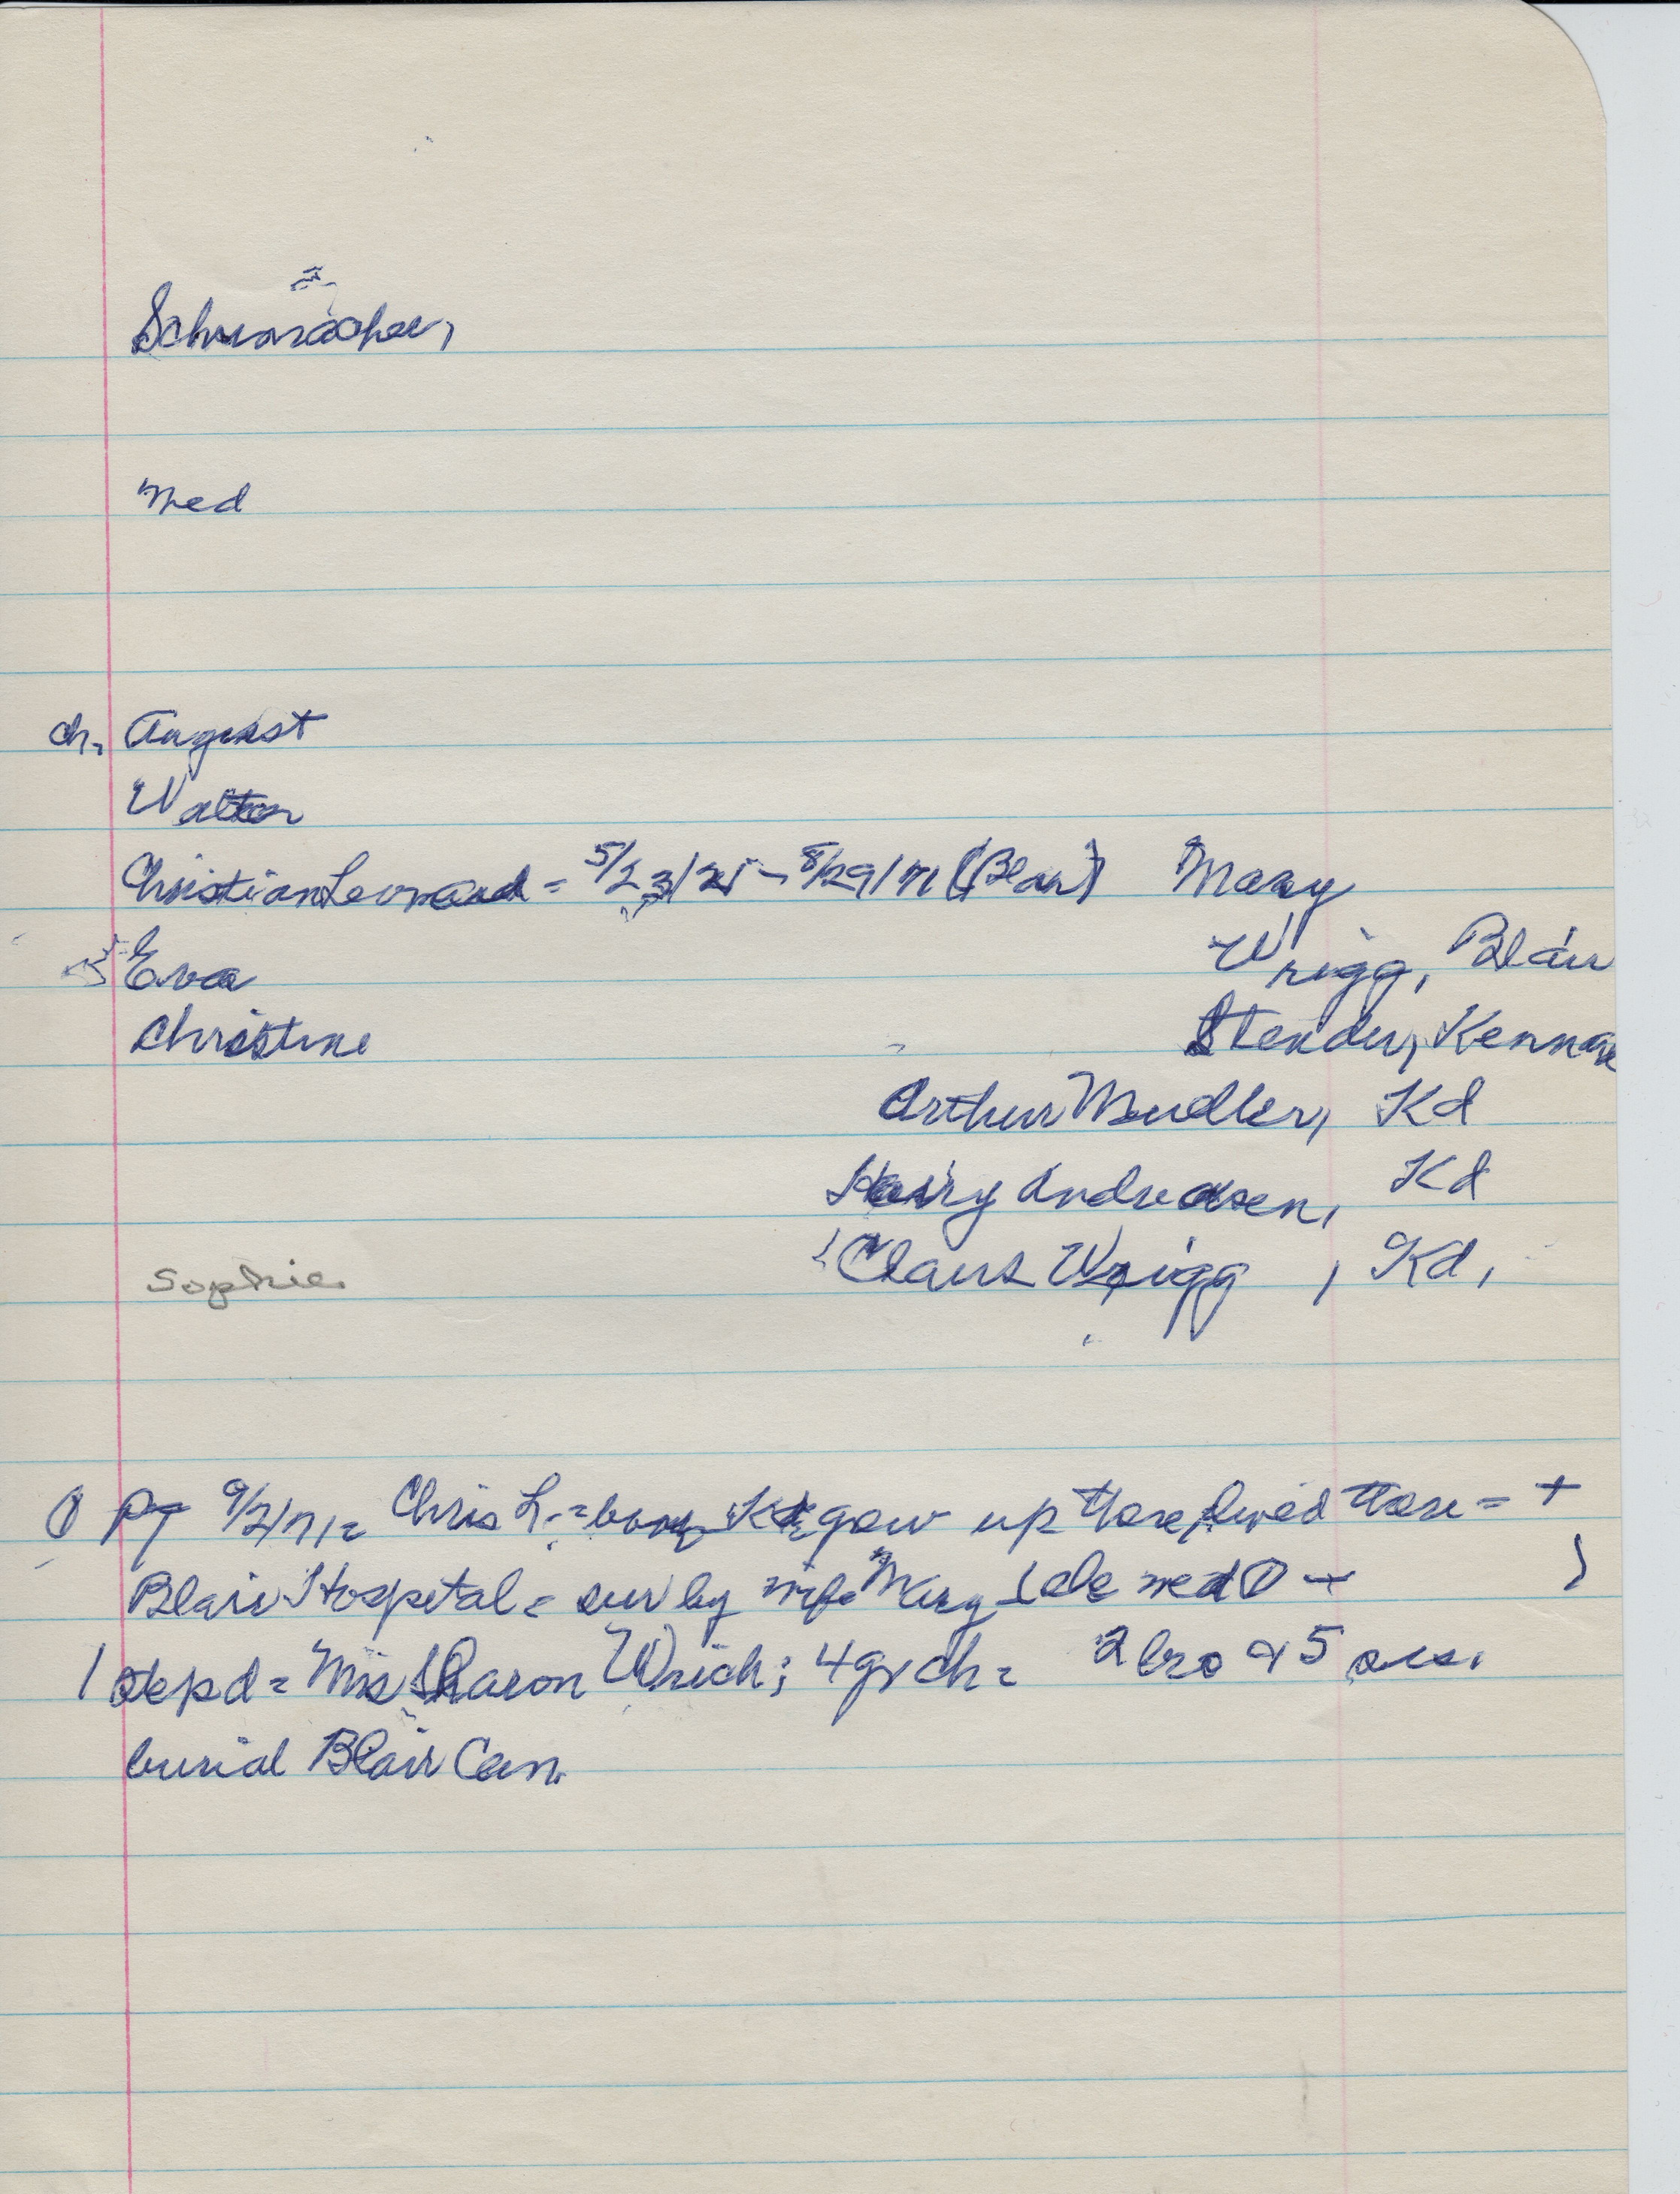 Schumacher,
Med
ch, August
Walter
Christian Leonard = 5/23/25 - 8/29/71 (Blair) Mary
Eva Wrigg, Blair
Christine Stender, Kennard
Arthur Mueller, Kd
Harry Andreasen, Kd
Sophie Claus Wrigg, Kd,
① PT 9/2/71 = Chris L. = born Kd grew up there, lived there = +
Blair Hospital = sur by wife Mary
1 stepd = Mrs Sharon Wrich; 4 gr ch = 2 bro & 5 sis.
burial Blair Cem.